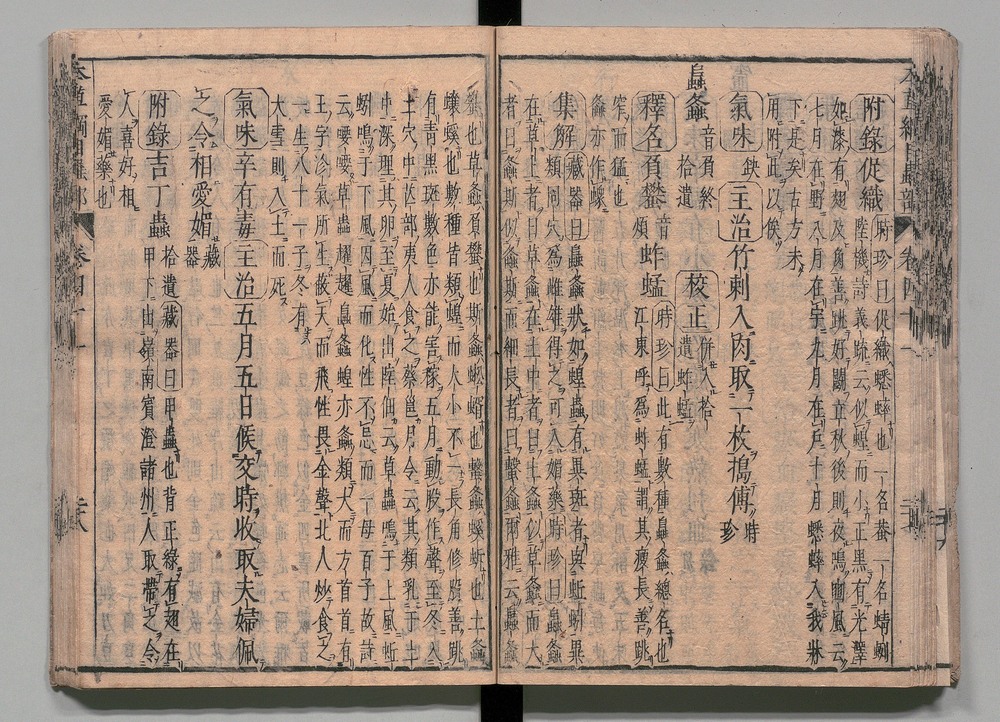 附錄促織時珍曰促織蟋蟀也一名蛬一名蜻蛚
陸機詩義疏云似蝗而小正黑有光澤
如漆有翅及角善跳好鬭立秋後則夜鳴豳風云
七月在野八月在宇九月在戶十月蟋蟀入我牀
下是矣古方未
用附此以俟
氣味缺主治竹刺入肉取一枚搗傅時珍
䘀螽音負終拾遺校正併入拾遺蚱蜢
釋名負蠜音煩蚱蜢時珍曰此有數種䘀螽總名也
江東呼爲蚱蜢謂其瘦長善跳
窄而猛也
螽亦作𧑄
集解藏器曰䘀螽狀如蝗蟲有異斑者與蚯蚓異
類同穴爲雌雄得之可入媚藥時珍曰䘀螽
在草上者曰草螽在土中者曰土螽似草螽而大
者曰螽斯似螽斯而細長者曰蟿螽爾雅云䘀螽
蠜也草螽負蠜也斯螽蜙蝑也蟿螽螇蚸也土螽
蠰谿也數種皆類蝗而大小不一長角修股善跳
有青黑斑數色亦能害稼五月動股作聲至冬入
土穴中芒部夷人食之蔡邕月令云其類乳于土
中深埋其卵至夏始出陸佃云草蟲鳴于上風蚯
蚓鳴于下風因風而化性不忌而一母百子故詩
云喓喓草蟲趯趯䘀螽蝗亦螽類大而方首首有
王字沴氣所生蔽天而飛性畏金聲北人炒食之
一生八十一子冬有
大雪則入土而死
氣味辛有毒主治五月五日候交時收取夫婦佩
之令相愛媚藏器
附錄吉丁蟲拾遺藏器曰甲蟲也背正綠有翅在
甲下出嶺南賓澄諸州人取帶之令
人喜好相
愛媚藥也